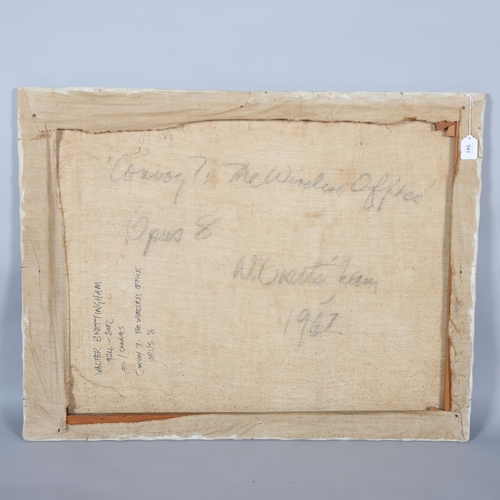 'Convoy 7, The Wireless Office'
Opus 8
W. Brettingham
1962
WALTER BRETTINGHAM
1924-2002
OIL / CANVAS
CONVOY 7. THE WIRELESS OFFICE
OPUS 8